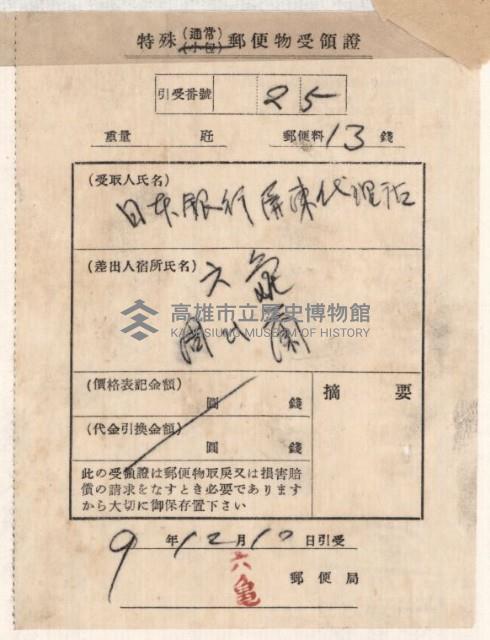 特殊(通常)(小包)郵便物受領證
引受番號 25
重量 瓩 郵便料 13 錢
(受取人氏名)
日本銀行屏東代理店
(差出人宿所氏名)
六龜
高雄市立歷史博物館
KAOHSIUNG MUSEUM OF HISTORY
(價格表記金額)
圓 錢
摘要
(代金引換金額)
圓 錢
此の受領證は郵便物取戻又は損害賠
償の請求をなすとき必要であります
から大切に御保存置下さい
9年12月10日引受
六龜
郵便局